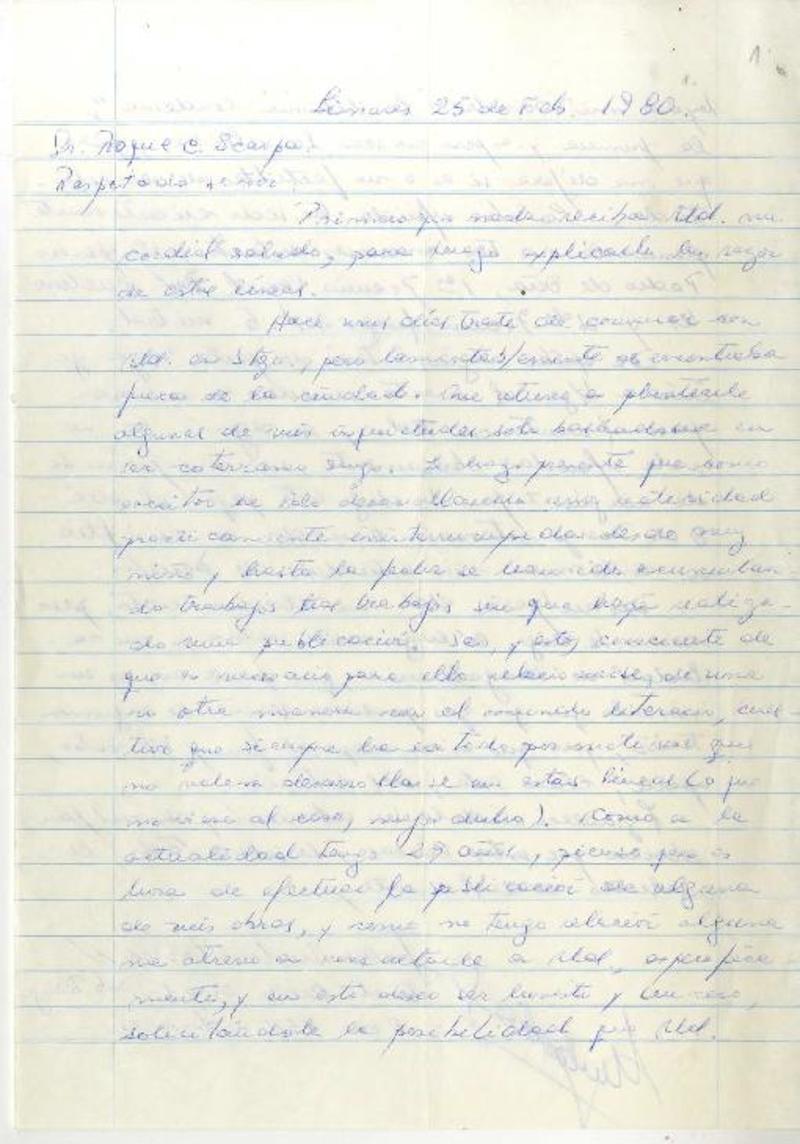 Linares 25 de Feb. 1980.
Sr. Roque E. Scarpa.
Respetado señor
Primero que nada reciba Ud. un
cordial saludo, para luego explicarle la razón
de estas líneas.
Hace unos días traté de conversar con
Ud. en Stgo., pero lamentablemente se encontraba
fuera de la ciudad. Me atrevo a plantearle
algunas de mis inquietudes sólo basándome en
ser coterráneo suyo. Le hago presente que como
escritor he ido desarrollando una actividad
practicamente ininterrumpida desde muy
niño y hasta la fecha se han ido acumulan-
do trabajos tras trabajos sin que haya realiza-
do una publicación. Sé, y estoy conciente de
que es necesario para ello relacionarse, de una
u otra manera con el mundo literario, cues-
tión que siempre he evitado por motivos que
no valen desarrollarse en estas líneas (o que
no viene al caso, mejor dicho). Como en la
actualidad tengo 29 años, pienso que es
hora de efectuar la publicación de alguna
de mis obras, y como no tengo relación alguna
me atrevo a consultarle a Ud., específica
mente, y en esto deseo ser honesto y
solicitándole la posibilidad que Ud.